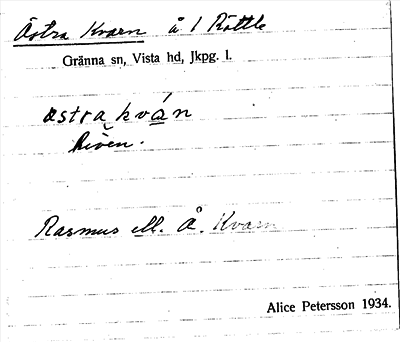 Östra Kvarn å 1 Röttle
Gränna sn, Vista hd, Jkpg. l.
östra kván
Riven.
Rasmus ell. Å. Kvarn
Alice Petersson 1934.